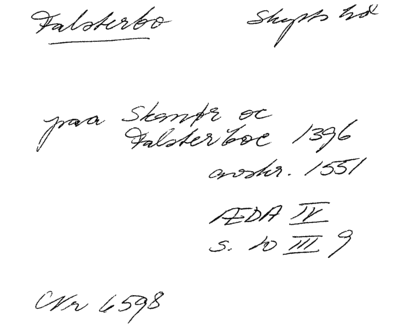 Falsterbo Skytts hd
paa Skanør oc
Falsterboe 1396
avskr. 1551
ÆDA IV
s. 10 III 9
CNr 6598